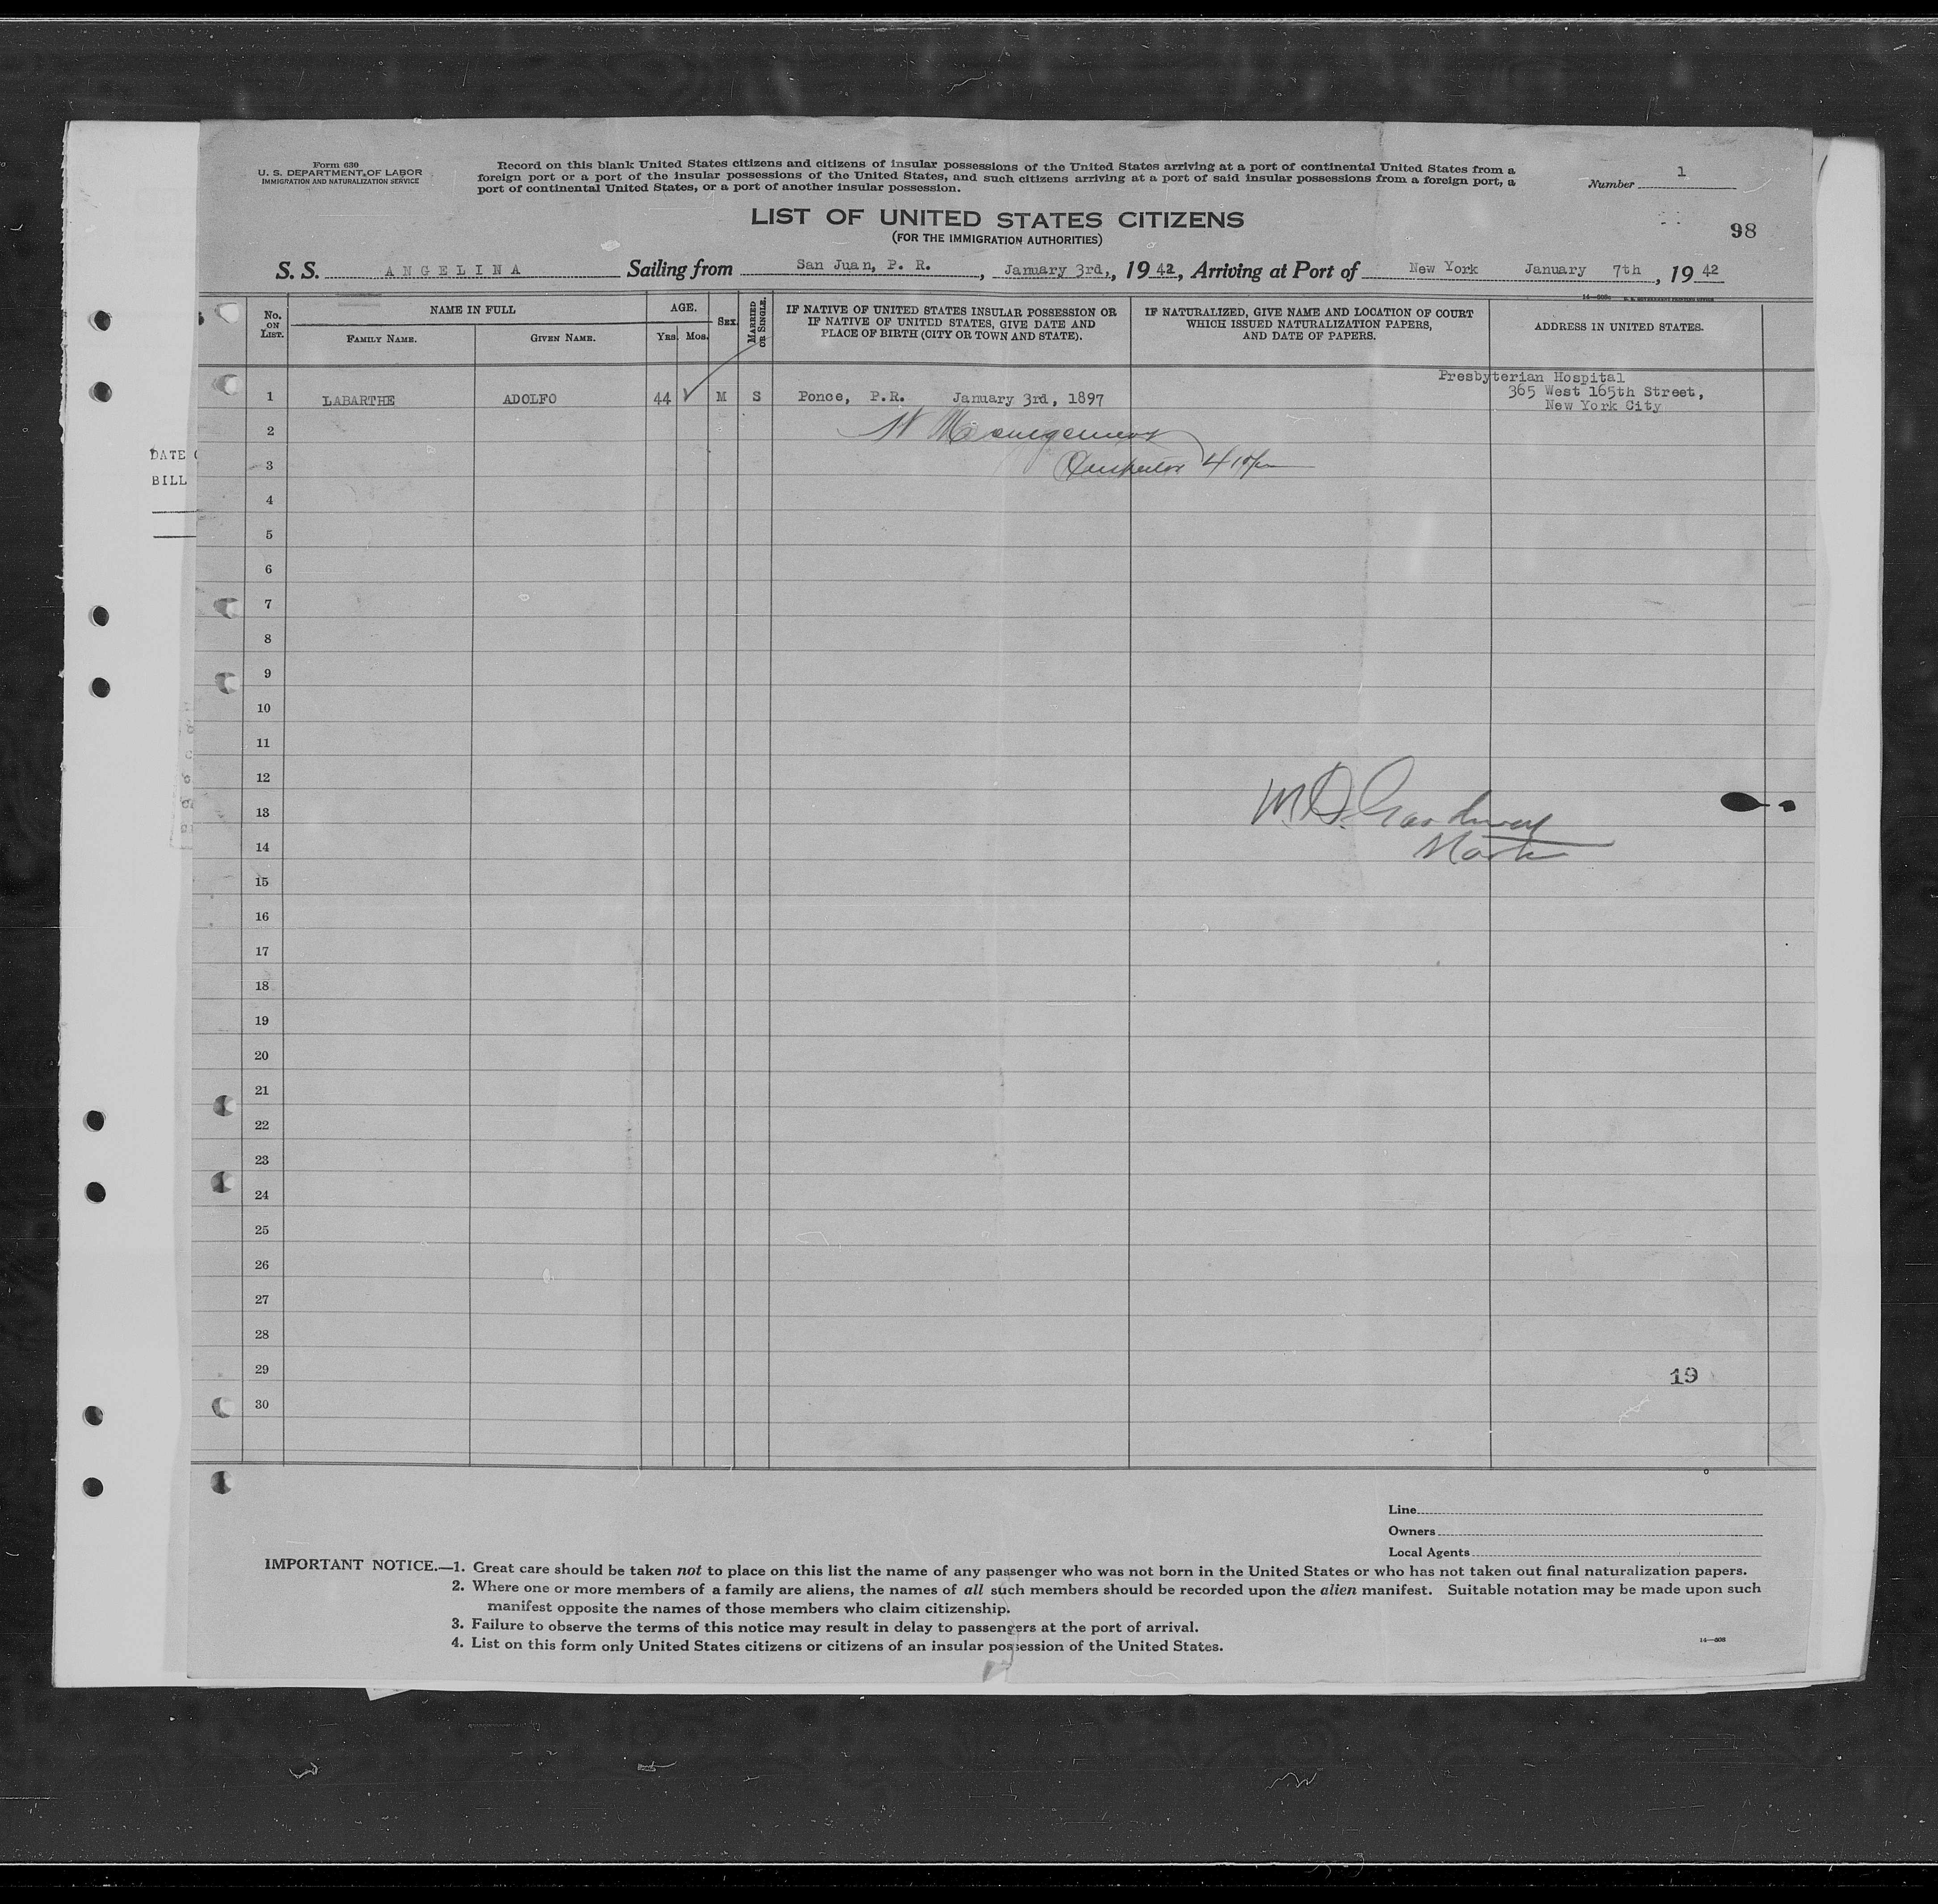 Form 630
U. S. DEPARTMENT OF LABOR
IMMIGRATION AND NATURALIZATION SERVICE
Record on this blank United States citizens and citizens of insular possessions of the United States arriving at a port of continental United States from a
foreign port or a port of the insular possessions of the United States, and such citizens arriving at a port of said insular possessions from a foreign port, a
port of continental United States, or a port of another insular possession.
Number 1
LIST OF UNITED STATES CITIZENS
(FOR THE IMMIGRATION AUTHORITIES)
98
S. S. ANGELINA Sailing from San Juan, P. R., January 3rd,, 1942, Arriving at Port of New York January 7th, 1942
No. ON LIST. NAME IN FULL FAMILY NAME. GIVEN NAME. AGE. YRS. MOS. SEX. MARRIED OR SINGLE.
IF NATIVE OF UNITED STATES INSULAR POSSESSION OR
IF NATIVE OF UNITED STATES, GIVE DATE AND
PLACE OF BIRTH (CITY OR TOWN AND STATE).
IF NATURALIZED, GIVE NAME AND LOCATION OF COURT
WHICH ISSUED NATURALIZATION PAPERS,
AND DATE OF PAPERS.
ADDRESS IN UNITED STATES.
Presbyterian Hospital
365 West 165th Street,
New York City
1 LABARTHE ADOLFO 44 M S Ponce, P.R. January 3rd, 1897
2
3 Inspector
DATE
BILL
4
5
6
7
8
9
10
11
12
13 M.D.
14
15
16
17
18
19
20
21
22
23
24
25
26
27
28
29
19
30
Line
Owners
Local Agents
IMPORTANT NOTICE.—1. Great care should be taken not to place on this list the name of any passenger who was not born in the United States or who has not taken out final naturalization papers.
2. Where one or more members of a family are aliens, the names of all such members should be recorded upon the alien manifest. Suitable notation may be made upon such
manifest opposite the names of those members who claim citizenship.
3. Failure to observe the terms of this notice may result in delay to passengers at the port of arrival.
4. List on this form only United States citizens or citizens of an insular possession of the United States.
14—808